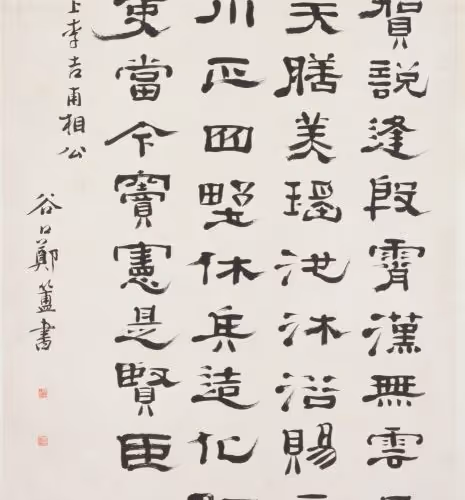 賀說逢殷霽漢無雲
天膳美瑤池沐浴賜
川正四野休兵造化
當今竇憲是賢臣
上李吉甫相公
谷口鄭簠書